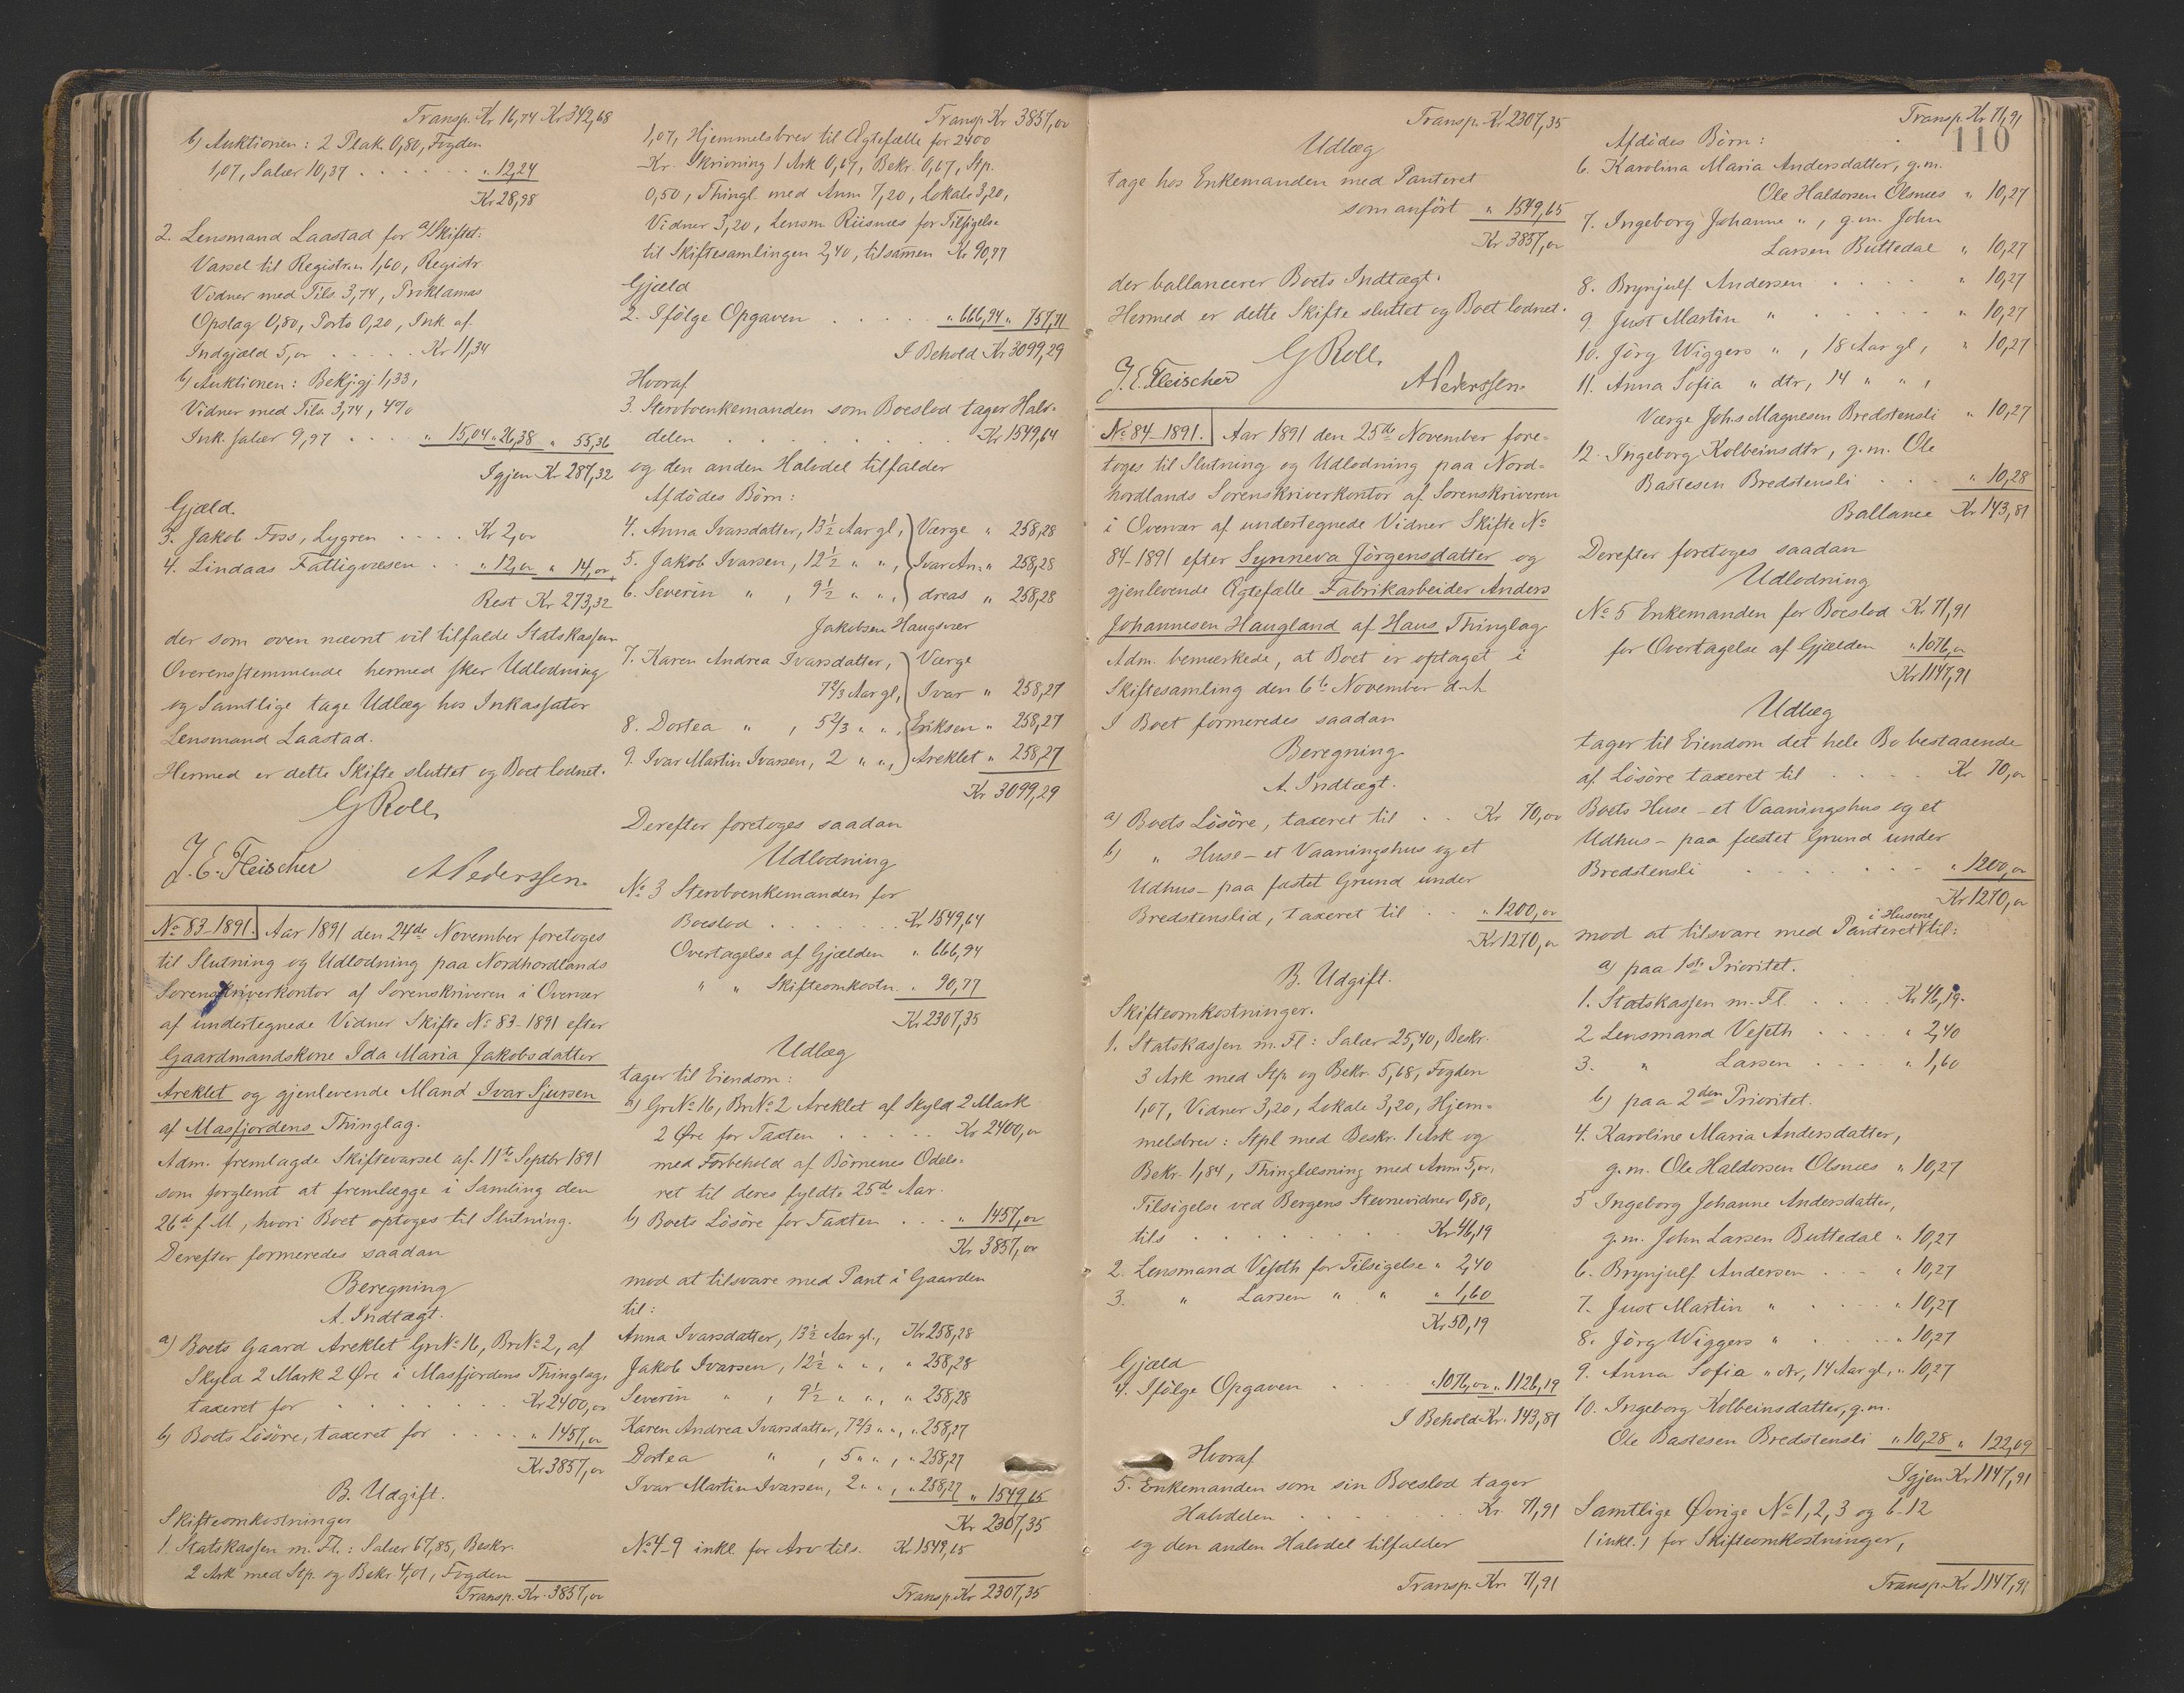 Transp. Kr 16,74 Kr 342,68
b) Auktionen: 2 Plak. 0,80, Fogden
1,07, Salær 10,37 . . . . . . " 12,24
Kr 28,98
2. Lensmand Laastad for a) Skiftet:
Varsel til Registr.n 1,60, Registr.
Vidner med Tils 3,74, Proklamas
Opslag 0,80, Porto 0,20, Ink af.
Indgjæld 5,oo . . . . . Kr 11,34
b) Auktionen: Bekj.gj. 1,33,
Vidner med Tils 3,74, 4%
Ink. salær 9,97 . . . . " 15,04 " 26,38 " 55,36
Igjen Kr 287,32
Gjæld.
3. Jakob Foss, Lygren . . . . Kr 2,oo
4. Lindaas Fattigvæsen . . " 12,oo " 14,oo
Rest Kr 273,32
der som oven nævnt vil tilfalde Statskassen
Overensstemmende hermed sker Udlodning
og Samtlige tage Udlæg hos Inkassator
Lensmand Laastad.
Hermed er dette Skifte sluttet og Boet lodnet.
G Roll,
J. E. Fleischer A Pederssen.
No 83-1891. Aar 1891 den 24de November foretoges
til Slutning og Udlodning paa Nordhordlands
Sorenskriverkontor af Sorenskriveren i Overvær
af undertegnede Vidner Skifte No 83-1891 efter
Gaardmandskone Ida Maria Jakobsdatter
Areklet og gjenlevende Mand Ivar Sjursen
af Masfjordens Thinglag.
Adm. fremlagde Skiftevarsel af 11te Septbr 1891
som forglemt at fremlægge i Samling den
26de f. M., hvori Boet optoges til Slutning.
Derefter formeredes saadan
Beregning
A. Indtægt.
a) Boets Gaard Areklet GrNo 16, BrNo 2, af
Skyld 2 Mark 2 Øre i Masfjordens Thinglag,
taxeret for . . . . . . . Kr 2400,oo
b) Boets Lösöre, taxeret for . . . . " 1457,oo
Kr 3857,oo
B. Udgift.
Skifteomkostninger
1. Statskassen m. Fl.: Salær 67,85, Beskr.
2 Ark med Stp. og Bekr. 4,01, Fogden
Transp. Kr. 3857,oo
Transp Kr 3857,oo
1,07, Hjemmelsbrev til Ægtefælle for 2400
Kr. Skrivning 1 Ark 0,67, Bekr. 0,67, Stp.
0,50, Thingl. med Anm 7,20, Lokale 3,20,
Vidner 3,20, Lensm Riisnæs for Tilsigelse
til Skiftesamlingen 2,40, tilsammen Kr 90,77
Gjæld
2. Ifölge Opgaven . . . . . " 666,94 " 757,71
I Behold Kr 3099,29
Hvoraf
3. Stervboenkemanden som Boeslod tager Halv-
delen . . . . . . . . . . Kr 1549,64
og den anden Halvdel tilfalder
Afdödes Börn:
4. Anna Ivarsdatter, 13½ Aar gl, Værge " 258,28
5. Jakob Ivarsen, 12½ " ", Ivar An- " 258,28
6. Severin " , 9½ " ", dreas " 258,28
Jakobsen Haugsvær
7. Karen Andrea Ivarsdatter, Værge
7 2/3 Aar gl, Ivar " 258,27
8. Dortea " , 5 2/3 " ", Eriksen " 258,27
9. Ivar Martin Ivarsen, 2 " ", Areklet " 258,27
Kr 3099,29
Derefter foretoges saadan
Udlodning
No 3 Stervboenkemanden for
Boeslod . . . . . . . Kr 1549,64
Overtagelse af Gjælden " 666,94
" " Skifteomkostn. " 90,77
Kr 2307,35
Udlæg
tager til Eiendom:
a) GrNo 16, BrNo 2 Areklet af Skyld 2 Mark
2 Øre for Taxten . . . . . Kr 2400,oo
med Forbehold af Börnenes Odels-
ret til deres fyldte 25de Aar.
b) Boets Lösöre for Taxten . . . " 1457,oo
Kr 3857,oo
mod at tilsvare med Pant i Gaarden
til:
Anna Ivarsdatter, 13½ Aar gl., Kr 258,28
Jakob Ivarsen, 12½ " ", " 258,28
Severin " , 9½ " ", " 258,28
Karen Andrea Ivarsdatter, 7 2/3 " ", " 258,27
Dortea " , 5 " ", " 258,27
Ivar Martin Ivarsen, 2 " ", " 258,27 " 1549,65
Kr 2307,35
No 4-9 inkl. for Arv tils. Kr 1549,65
Transp. Kr 2307,35
Transp. Kr 2307,35
Udlæg
tage hos Enkemanden med Panteret
som anfört " 1549,65
Kr 3857,oo
der ballancerer Boets Indtægt.
Hermed er dette Skifte sluttet og Boet lodnet.
G Roll,
J. E. Fleischer A Pederssen.
No 84-1891. Aar 1891 den 25de November fore-
toges til Slutning og Udlodning paa Nord-
hordlands Sorenskriverkontor af Sorenskriveren
i Overvær af undertegnede Vidner Skifte No
84-1891 efter Synneva Jörgensdatter og
gjenlevende Ægtefælle Fabrikarbeider Anders
Johannesen Haugland af Haus Thinglag
Adm. bemærkede, at Boet er optaget i
Skiftesamling den 6te November d. A.
I Boet formeredes saadan
Beregning
A. Indtægt.
a) Boets Lösöre, taxeret til . . Kr 70,oo
b) " Huse - et Vaaningshus og et
Udhus - paa fæstet Grund under
Bredstenslid, taxeret til . . " 1200,oo
Kr 1270,oo
B. Udgift.
Skifteomkostninger.
1. Statskassen m. Fl: Salær 25,40, Beskr.
3 Ark med Stp. og Bekr. 5,68, Fogden
1,07, Vidner 3,20, Lokale 3,20, Hjem-
melsbrev: Stpl med Beskr. 1 Ark og
Bekr. 1,84, Thinglæsning med Anm 5,oo,
Tilsigelse ved Bergens Stevnevidner 0,80,
tils . . . . . . . Kr 46,19
2. Lensmand Veseth for Tilsigelse " 2,40
3. " Larsen " " " 1,60
Kr 50,19
Gjæld
4. Ifölge Opgaven . . . " 1076,oo " 1126,19
I Behold Kr. 143,81
Hvoraf
5. Enkemanden som sin Boeslod tager
Halvdelen . . . . . . . Kr. 71,91
og den anden Halvdel tilfalder
Transp. Kr. 71,91
Transp. Kr 71,91
110
Afdödes Börn:
6. Karolina Maria Andersdatter, g.m.
Ole Haldorsen Olsnæs " 10,27
7. Ingeborg Johanne ", g.m. John
Larsen Buttedal " 10,27
8. Brynjulf Andersen . . . . " 10,27
9. Just Martin " . . . . . . " 10,27
10. Jörg Wiggers ", 18 Aar gl, " 10,27
11. Anna Sofia " dtr, 14 " ",
Værge Johs Magnesen Bredstensli " 10,27
12. Ingeborg Kolbeinsdtr, g.m. Ole
Bastesen Bredstensli . . . " 10,28
Ballance Kr 143,81
Derefter foretoges saadan
Udlodning
No 5 Enkemanden for Boeslod Kr. 71,91
for Overtagelse af Gjælden " 1076,oo
Kr 1147,91
Udlæg
tager til Eiendom det hele Bo bestaaende
af Lösöre taxeret til . . . . Kr 70,oo
Boets Huse - et Vaaningshus og et
Udhus - paa fæstet Grund under
Bredstensli . . . . . . . " 1200,oo
Kr 1270,oo
i Husene
mod at tilsvare med Panteret til:
a) paa 1ste Prioritet.
1. Statskassen m. Fl. . . . . Kr 46,19.
2 Lensmand Veseth . . . . . " 2,40
3. " Larsen . . . . " 1,60
b) paa 2den Prioritet.
4. Karoline Maria Andersdatter,
g.m. Ole Haldorsen Olsnæs " 10,27
5 Ingeborg Johanne Andersdatter,
g.m. John Larsen Buttedal " 10,27
6. Brynjulf Andersen . . . " 10,27
7. Just Martin " . . . . . " 10,27
8. Jörg Wiggers " . . . . . " 10,27
9. Anna Sofia " dtr, 14 Aar gl, " 10,27
10. Ingeborg Kolbeinsdatter, g.m.
Ole Bastesen Bredstensli " 10,28 " 122,09
Igjen Kr 1147,91
Samtlige Øvrige No 1, 2, 3 og 6-12
(inkl.) for Skifteomkostninger,
Transp. Kr 1147,91